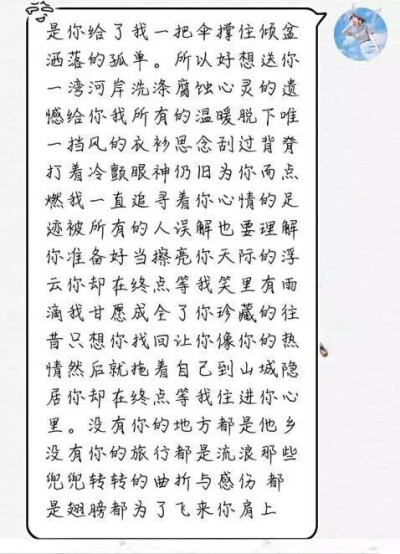 是你给了我一把伞撑住倾盆
洒落的孤单。所以好想送你
一湾河岸洗涤腐蚀心灵的遗
憾给你我所有的温暖脱下唯
一挡风的衣衫思念刮过背脊
打着冷颤眼神仍旧为你而点
燃我一直追寻着你心情的足
迹被所有的人误解也要理解
你准备好当擦亮你天际的浮
云你却在终点等我笑里有雨
滴我甘愿成全了你珍藏的往
昔只想你找回让你像你的热
情然后就拖着自己到山城隐
居你却在终点等我住进你心
里。没有你的地方都是他乡
没有你的旅行都是流浪那些
兜兜转转的曲折与感伤 都
是翅膀都为了飞来你肩上